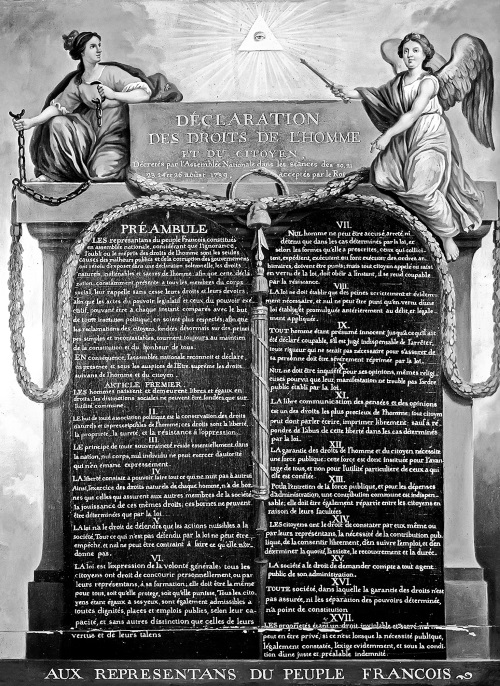 DÉCLARATION
DES DROITS DE L'HOMME
ET DU CITOYEN,
Décrétés par l'Assemblée Nationale dans les séances des 20, 21
23, 24 et 26 aoust 1789, acceptés par le Roi
PRÉAMBULE
LES représentans du peuple François, constitués
en assemblée nationale, considérant que l'ignorance,
l'oubli ou le mépris des droits de l'homme sont les seules
causes des malheurs publics et de la corruption des gouvernemens,
ont résolu d'exposer dans une déclaration solemnelle, les droits
naturels, inaliénables et sacrés de l'homme; afin que cette décla-
ration, constamment présente a tous les membres du corps
social, leur rappelle sans cesse leurs droits et leurs devoirs;
afin que les actes du pouvoir législatif et ceux du pouvoir exé-
cutif, pouvant être a chaque instant comparés avec le but
de toute institution politique, en soient plus respectés; afin que
les réclamations des citoyens, fondées désormais sur des princi-
pes simples et incontestables, tournent toujours au maintien
de la constitution et du bonheur de tous.
EN conséquence, l'assemblée nationale reconnoit et déclare,
en présence et sous les auspices de l'Etre suprême les droits
suivans de l'homme et du citoyen.
ARTICLE PREMIER.
LES hommes naissent et demeurent libres et égaux en
droits; les distinctions sociales ne peuvent être fondées que sur
l'utilité commune.
II.
LE but de toute association politique est la conservation des droits
naturels et imprescriptibles de l'homme; ces droits sont la liberté,
la propriété, la sureté, et la résistance à l'oppression.
III.
LE principe de toute souveraineté réside essentiellement dans
la nation, nul corps, nul individu ne peut exercer d'autorité
qui n'en émane expressément
IV.
LA liberté consiste a pouvoir faire tout ce qui ne nuit pas à autrui
Ainsi, l'exercice des droits naturels de chaque homme, n'a de bor-
nes que celles qui assurent aux autres membres de la société
la jouissance de ces mêmes droits; ces bornes ne peuvent
être déterminées que par la loi.
V.
LA loi n'a le droit de défendre que les actions nuisibles à la
société. Tout ce qui n'est pas défendu par la loi ne peut être
empêché, et nul ne peut être contraint à faire ce qu'elle n'or-
donne pas.
VI.
LA loi est l'expression de la volonté générale; tous les
citoyens ont droit de concourir personnellement, ou par
leurs représentans, à sa formation; elle doit être la même
pour tous, soit qu'elle protege, soit qu'elle punisse, Tous les
citoyens étant égaux a ses yeux, sont également admissibles a
toutes dignités, places et emplois publics, selon leur ca-
pacité, et sans autres distinction que celles de leurs
vertus et de leurs talens
VII.
NUL homme ne peut être accusé, arreté ni
détenu que dans les cas déterminés par la loi, et
selon les formes qu'elle a prescrites, ceux qui sollici-
tent, expédient, exécutent ou font exécuter des ordres ar-
bitraires, doivent être punis; mais tout citoyen appelé ou saisi
en vertu de la loi, doit obéir a l'instant, il se rend coupable
par la résistance.
VIII.
LA loi ne doit établir que des peines strictement et évidem-
ment nécessaire, et nul ne peut être puni qu'en vertu d'une
loi établie et promulguée antérieurement au délit, et léga-
lement appliquée.
IX.
TOUT homme étant présumé innocent jusqu'a ce qu'il ait
été déclaré coupable, s'il est jugé indispensable de l'arrêter,
toute rigueur qui ne serait pas nécessaire pour s'assurer de
sa personne doit être sévèrement réprimée par la loi.
X.
NUL ne doit être inquiété pour ses opinions, mêmes religi-
euses pourvu que leur manifestation ne trouble pas l'ordre
public établi par la loi.
XI.
LA libre communication des pensées et des opinions
est un des droits les plus precieux de l'homme; tout citoyen
peut dont parler écrire, imprimer librement; sauf a ré-
pondre de l'abus de cette liberté dans les cas déterminés
par la loi.
XII.
LA garantie des droits de l'homme et du citoyen nécessite
une force publique; cette force est donc instituée pour l'avan-
tage de tous, et non pour l'utilité particuliere de ceux a qui
elle est confiée.
XIII.
Pour l'entretien de la force publique, et pour les dépenses
d'administration, une contribution commune est indispen-
sable; elle doit être également répartie entre les citoyens en
raison de leurs facultées
XIV.
LES citoyens ont le droit de constater par eux même ou
par leurs représentans, la nécessité de la contribution pub-
lique, de la consentir librement, d'en suivre l'emploi, et d'en
déterminer la quotité, l'assiette, le recouvrement et la durée.
XV.
LA société a le droit de demander compte a tout agent
public de son administration.
XVI.
TOUTE société, dans laquelle la garantie des droits n'est
pas assurée, ni les séparation des pouvoirs déterminée,
n'a point de constitution
XVII.
LES propriétés étant un droit inviolable et sacré, nul ne
peut en être privé, si ce n'est lorsque la nécessité publique,
légalement constatée, l'exige evidemment, et sous la condi-
tion d'une juste et préalable indemnité
AUX REPRESENTANS DU PEUPLE FRANCOIS